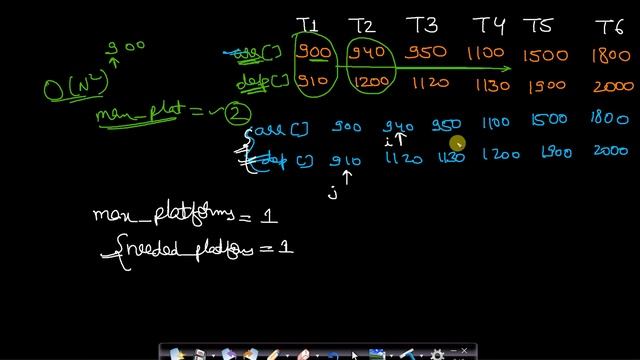 T1 T2 T3 T4 T5 T6
900
arr[] 900 940 950 1100 1500 1800
O(N²)
dep[] 910 1200 1120 1130 1900 2000
max_plat = 2
arr[] 900 940 950 1100 1500 1800
i
dep[] 910 1120 1130 1200 1900 2000
j
max_platforms = 1
needed_platforms = 1